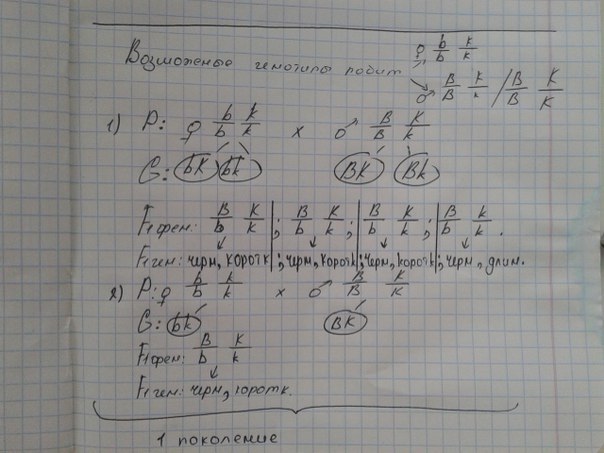 Возможные генотипы ♀ b/b k/k
♂ B/B K/k / B/B K/K
1) P: ♀ b/b k/k x ♂ B/B K/k
G: bK bk BK Bk
F₁фен: B/b K/K ; B/b K/k ; B/b K/k ; B/b k/k .
F₁ген: черн, коротк ; черн, коротк ; черн, коротк ; черн, длин.
2) P: ♀ b/b k/k x ♂ B/B K/K
G: bk BK
F₁фен: B/b K/k
F₁ген: черн, коротк.
1 поколение